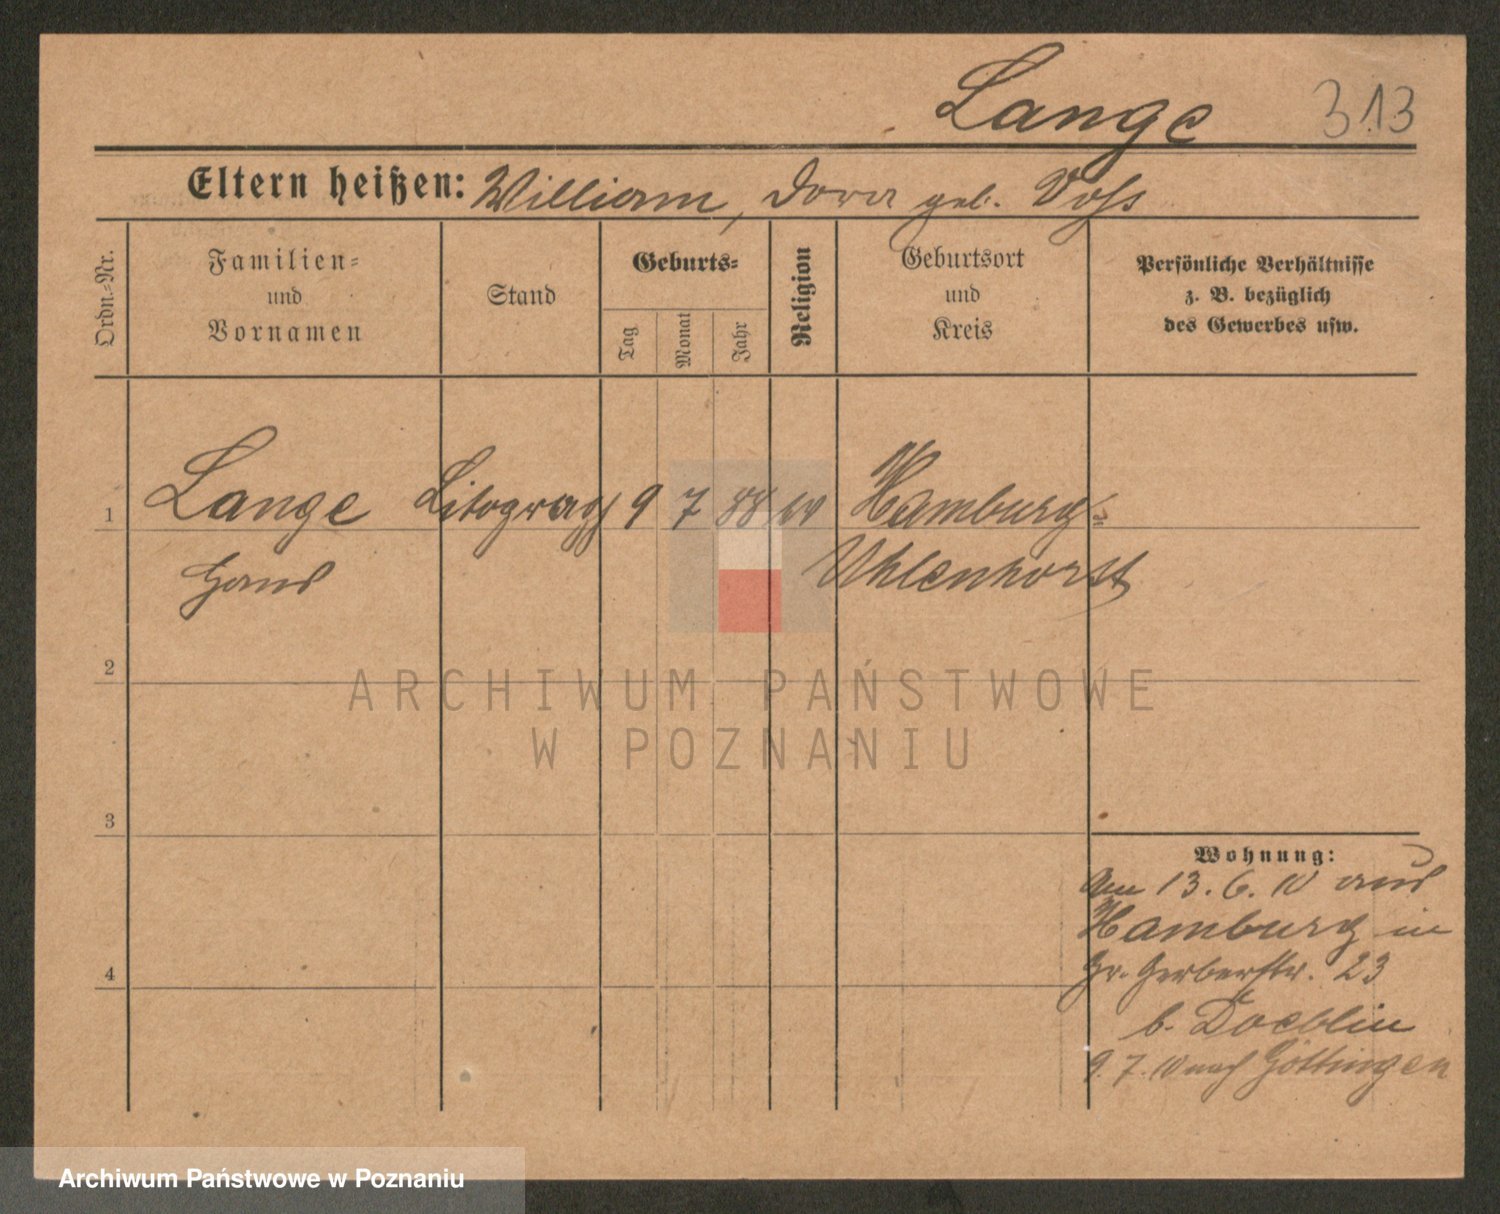 Lange 313
Eltern heißen: William, Dora geb. Voß
Ordn.-Nr.
Familien-
und
Vornamen
Stand
Geburts-
Tag
Monat
Jahr
Religion
Geburtsort
und
Kreis
Persönliche Verhältnisse
z. B. bezüglich
des Gewerbes usw.
1 Lange Litograph 9 7 88 Hamburg-
Hans Uhlenhorst
2
ARCHIWUM PAŃSTWOWE
W POZNANIU
3
Wohnung:
Am 13. 6. 10 aus
Hamburg in
4 Gr. Gerberstr. 23
b. Doeblin
9. 7. 10 nach Göttingen
Archiwum Państwowe w Poznaniu